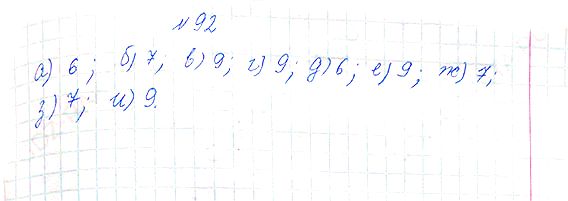 №92
а) 6; б) 7; в) 9; г) 9; д) 6; е) 9; ж) 7;
з) 7; и) 9.